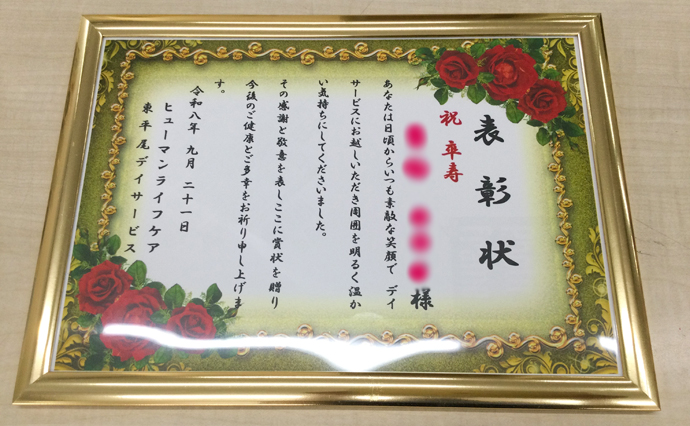 表彰状
祝 卒寿
様
あなたは日頃からいつも素敵な笑顔で デイ
サービスにお越しいただき周囲を明るく温か
い気持ちにしてくださいました。
その感謝と敬意を表しここに賞状を贈り
今後のご健康とご多幸をお祈り申し上げま
す。
令和八年 九月 二十一日
ヒューマンライフケア
東平尾デイサービス